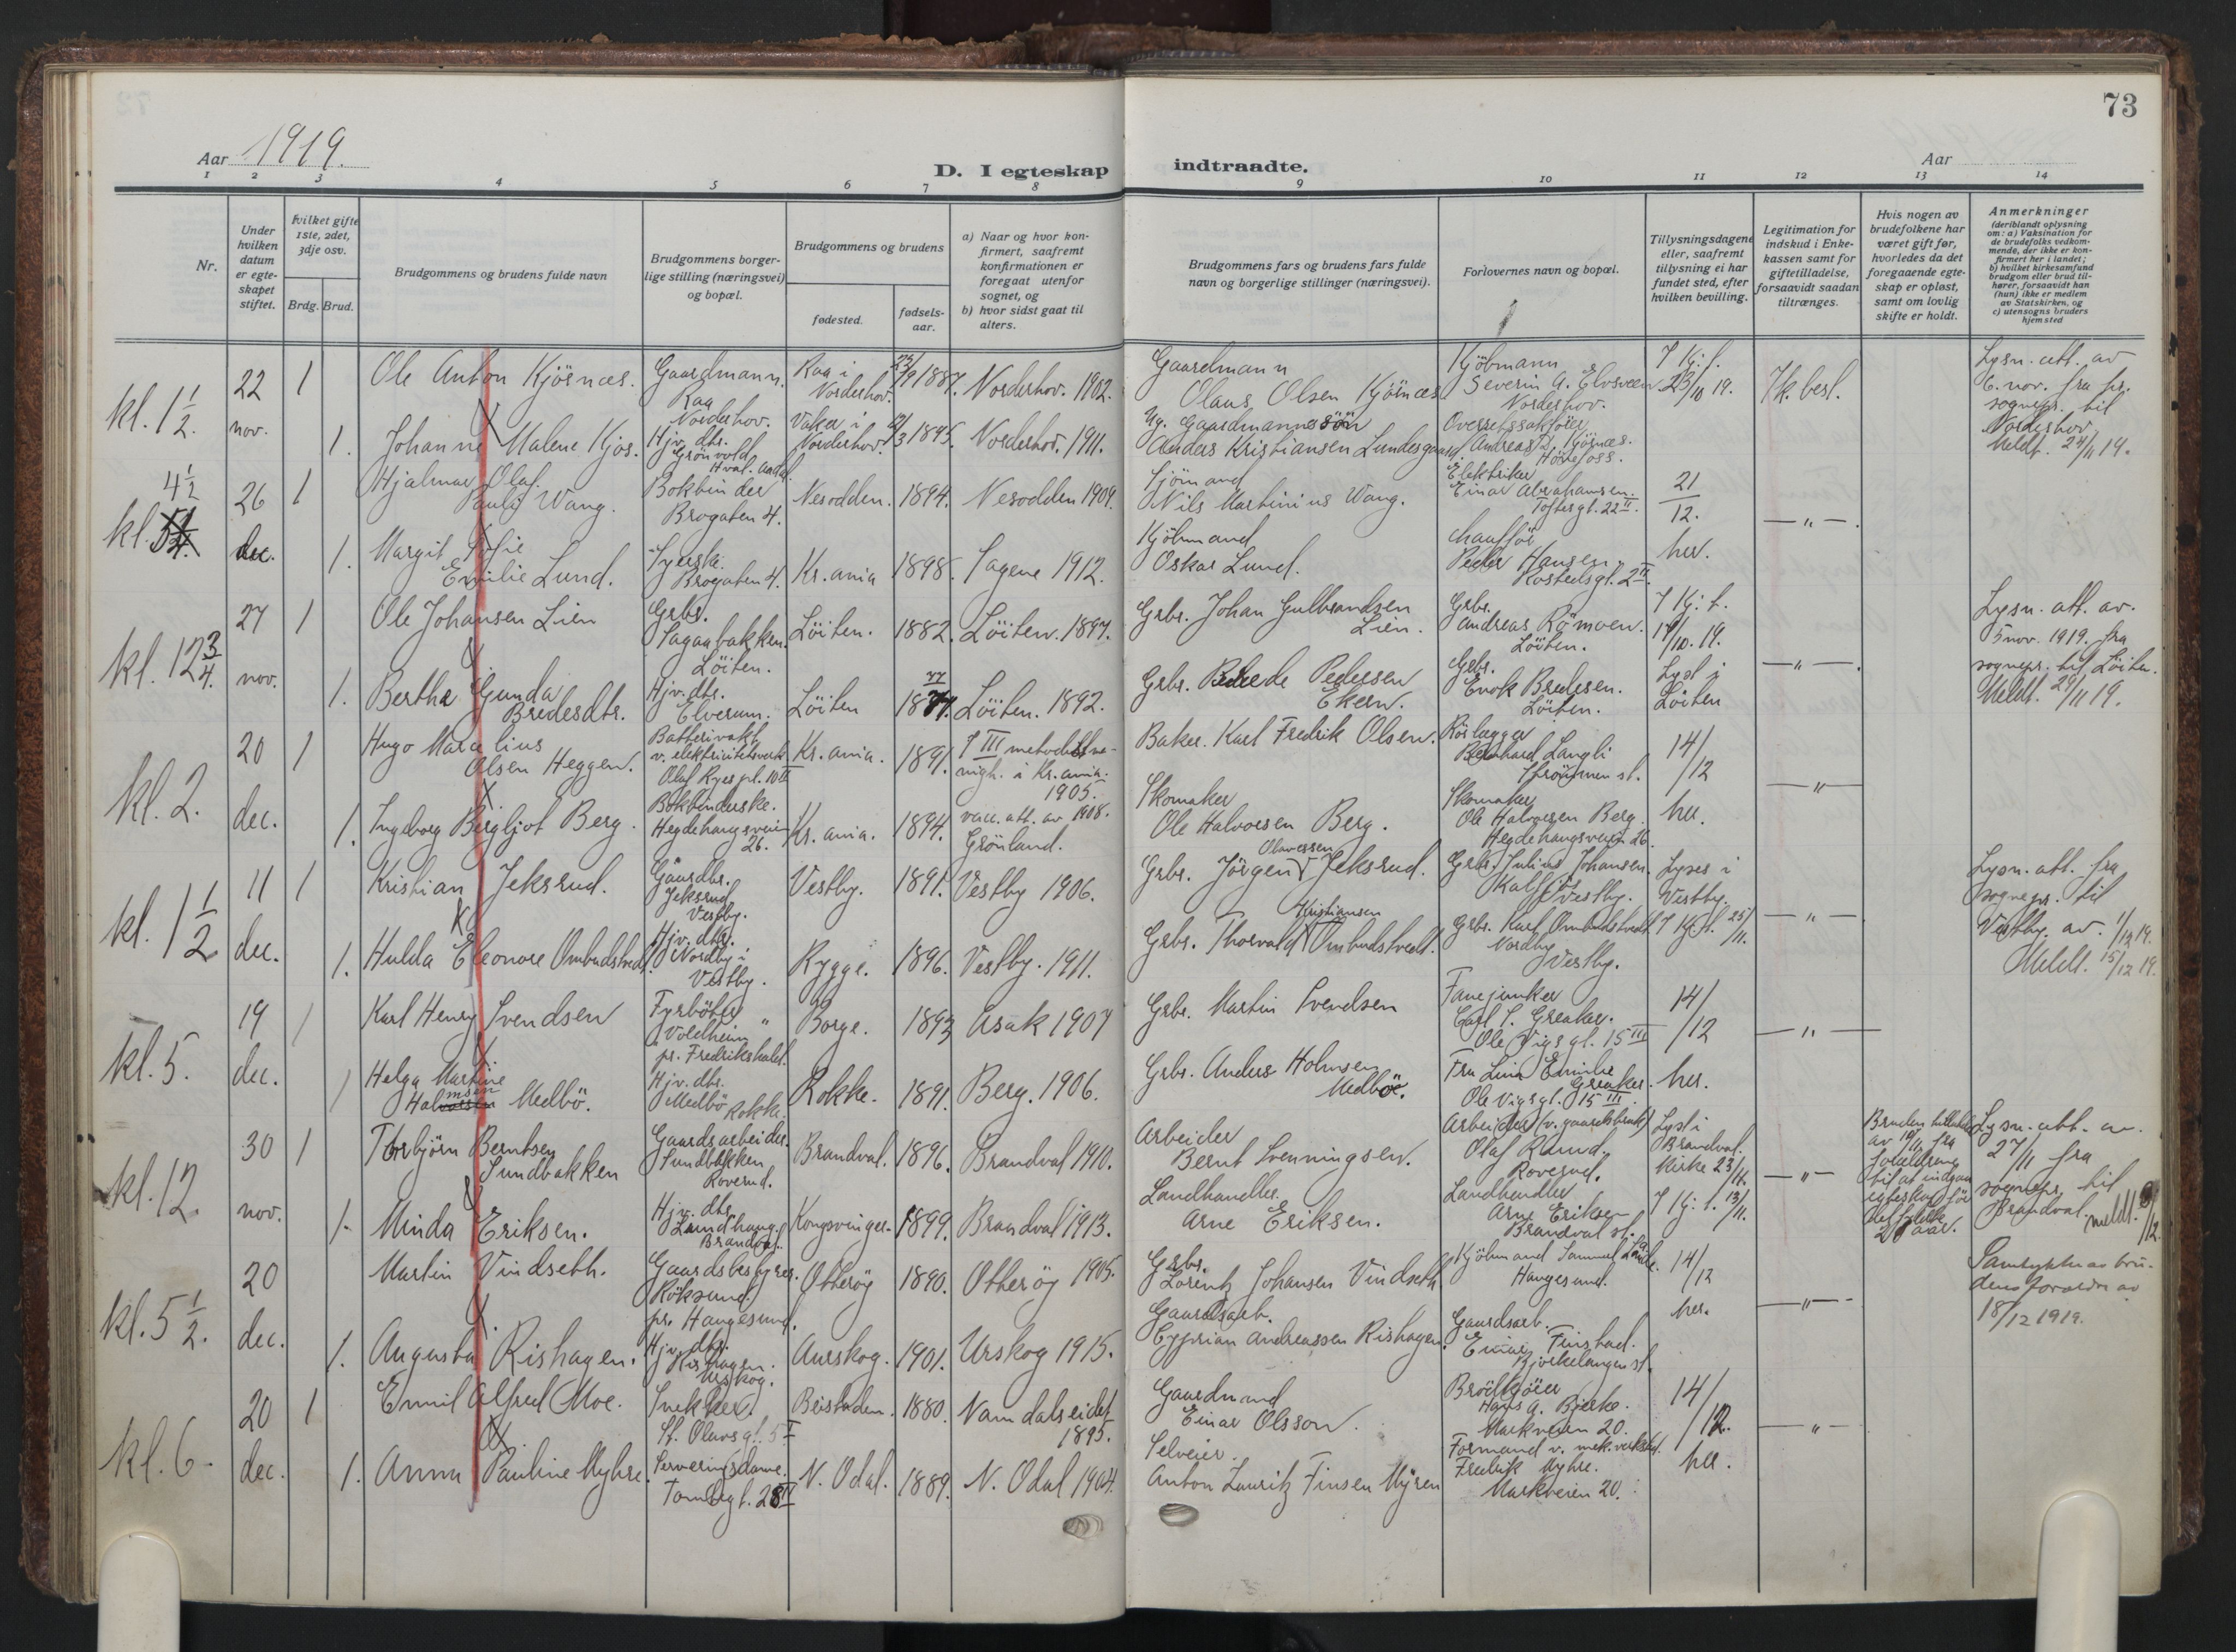 73
Aar 1919.
D. I egteskap indtraadte.
Aar
1 2 3 4 5 6 7 8 9 10 11 12 13 14
Nr.
Under hvilken datum er egteskapet stiftet.
Hvilket gifte 1ste, 2det, 3dje osv.
Brdg. Brud.
Brudgommens og brudens fulde navn
Brudgommens borgerlige stilling (næringsvei) og bopæl.
Brudgommens og brudens
fødested.
fødselsaar.
a) Naar og hvor konfirmert, saafremt konfirmationen er foregaat utenfor sognet, og
b) hvor sidst gaat til alters.
Brudgommens fars og brudens fars fulde navn og borgerlige stillinger (næringsvei).
Forlovernes navn og bopæl.
Tillysningsdagene eller, saafremt tillysning ei har fundet sted, efter hvilken bevilling.
Legitimation for indskud i Enkekassen samt for giftetilladelse, forsaavidt saadan tiltrænges.
Hvis nogen av brudefolkene har været gift før, hvorledes da det foregaaende egteskap er opløst, samt om lovlig skifte er holdt.
Anmerkninger
(deriblandt oplysning om: a) Vaksination for de brudefolks vedkommende, der ikke er konfirmert her i landet;
b) hvilket kirkesamfund brudgom eller brud tilhører, forsaavidt han (hun) ikke er medlem av Statskirken, og
c) utensogns bruders hjemsted
kl. 1 1/2.
22 nov.
1
Ole Anton Kjörnæs.
Gaardmann.
Raa
Norderhov.
Raa i
Norderhov.
23/9 1887.
Norderhov. 1902.
Gaardmann
Olaus Olsen Kjörnæs
Kjöbmann
Severin A. Elvsveen
Norderhov.
7 Kj. t.
23/10 19.
Fk. besl.
Lysn. att. av
6. nov. fra hr.
sognepr. til
Norderhov
Meldt. 24/11 19.
1.
Johanne Malene Kjos.
Hjv. dtr.
Grönvold
Hval.
Vaker i
Norderhov.
1895.
Norderhov. 1911.
Ug. Gaardmannssön
Anders Kristiansen Lundesgaard
Overretssakförer
Andreas Kjörnæs.
Hönefoss.
4 1/2
kl.
26 dec.
1
Hjalmar Olaf
Pauly Wang.
Bokbinder
Brogaten 4.
Nesodden.
1894.
Nesodden 1909.
Sjömand
Nils Martinius Wang.
Elektriker
Einar Abrahamsen.
Toftesgt. 22 II.
21/12.
— " —
1.
Margit Sofie
Emilie Lund.
Syerske.
Brogaten 4.
Kr.ania
1898.
Sagene 1912.
Kjöbmand
Oskar Lund.
Chaufför
Peder Hansen
Rostedsgt. 2 II.
her.
kl. 12 3/4.
27 nov.
1
Ole Johansen Lien
Grbr.
Sagaabakken.
Löiten.
Löiten.
1882.
Löiten. 1897.
Grbr. Johan Gulbrandsen
Lien.
Grbr.
Andreas Römoen.
Löiten.
7 Kj. t.
19/10. 19.
— " —
Lysn. att. av.
5 nov. 1919. fra
sognepr. til Löiten.
Meldt. 29/11 19.
1.
Bertha Gunda
Bredesdtr.
Hjv. dtr.
Elverum.
Löiten
77
Löiten. 1892.
Grbr. Brede Pedersen
Ekern.
Grbr.
Enok Bredesen.
Löiten.
Lyst i
Löiten
kl. 2.
20 dec.
1
Hugo Marcelius
Olsen Heggen.
Batterivakt
v. elektricitetsverk
Olaf Ryes pl. 10 II
Kr.ania.
1891.
7 III metodistme-
nigh. i Kr.ania.
1905.
Baker. Karl Fredrik Olsen.
Rörlægger
Bernhard Langli
Strömmen st.
14/12
— " —
1.
Ingeborg Bergljot Berg.
Bokbinderske.
Hegdehaugsveien
26.
Kr.ania.
1894.
vacc. att. av 1908.
Grönland.
Skomaker
Ole Halvorsen Berg.
Skomaker
Ole Halvorsen Berg.
Hegdehaugsveien 26.
her.
kl. 1 1/2
11 dec.
1
Kristian Jeksrud.
Gaardbr.
Jeksrud
Vestby.
Vestby.
1891.
Vestby 1906.
Olavessen
Grbr. Jörgen Jeksrud.
Grbr. Julius Johansen.
Vestby.
Lyses i
Vestby.
— " —
Lysn. att. fra
sognepr. til
Vestby. av. 1/12 19.
Meldt. 15/12 19.
1.
Hulda Eleonore Ombudstvedt.
Hjv. dtr.
Nordby i
Vestby.
Rygge.
1896.
Vestby. 1911.
Kristiansen
Grbr. Thorvald Ombudstvedt.
Grbr. Karl Ombudstvedt
Nordby
Vestby.
7 Kj. t. 25/11.
kl. 5.
19 dec.
1
Karl Henry Svendsen
Fyrböter
"Voldheim"
pr. Fredrikshald.
Borge.
1893
Asak 1907
Grbr. Martin Svendsen
Fanejunker
Carl S. Greaker.
Ole Vigs gt. 15 III
14/12
— " —
1
Helga Martine
Medbö.
Hjv. dtr.
Medbö Rokke.
Rokke.
1891.
Berg. 1906.
Grbr. Anders Holmsen
Medböe.
Fru Lina Emilie
Greaker.
Ole Vigs gt. 15 III.
her.
kl. 12.
30 nov.
1
Torbjörn Berntsen
Sundbakken
Gaardsarbeider.
Sundbakken
Roverud.
Brandval.
1896.
Brandval 1910.
Arbeider
Bernt Svenningsen.
Arbeider (v. gaardsbruk)
Olaf Rund.
Roverud.
Lyst i
Brandval.
Kirke 23/11.
— " —
Bruden tilladelse
av 19/11 fra
forældrene
til at indgaa
egteskap för
det fyldte
21 aar.
Lysn. att. av.
27/11 fra
sognepr. til
Brandval. meldt.
1.
Minda Eriksen.
Hjv. dtr.
Brandval.
Kongsvinger.
1899.
Brandval 1913.
Landhandler.
Arne Eriksen.
Landhandler
Arne Eriksen
Brandval st.
7 Kj. t. 13/11.
kl. 5 1/2.
20 dec.
Martin Vindseth.
Gaardsbestyrer.
Röksund.
pr. Haugesund.
Otteröy
1890.
Otteröy 1905.
Grbr.
Lorentz Johansen Vindseth
Kjöbmand Sammel
Haugesund.
14/12
— " —
Samtykke av bru-
dens forældre av
18/12 1919.
1.
Augusta Rishagen.
Hjv. dtr.
Rishagen.
Urskog.
Aurskog.
1901.
Urskog 1915.
Gaardsarb.
Cyprian Andreassen Rishagen.
Gaardsarb.
Einar Finstad.
Bjørkelangen st.
her.
kl. 6.
20 dec.
1
Emil Alfred Moe.
Snekker.
St. Olavs gt. 5 I
Beistaden.
1880.
Namdalseidet
1895.
Gaardmand
Einar Olsson.
Brödkjörer
Hans A. Bjerke.
Markveien 20.
14/12.
— " —
1.
Anna Pauline Myhre.
Serveringsdame.
Tomtegt. 28 II
N. Odal.
1889.
N. Odal 1904.
Selveier.
Anton Lauritz Finsen Myren
Formand v. mek. verksted.
Fredrik Myhre.
Markveien 20.
her.